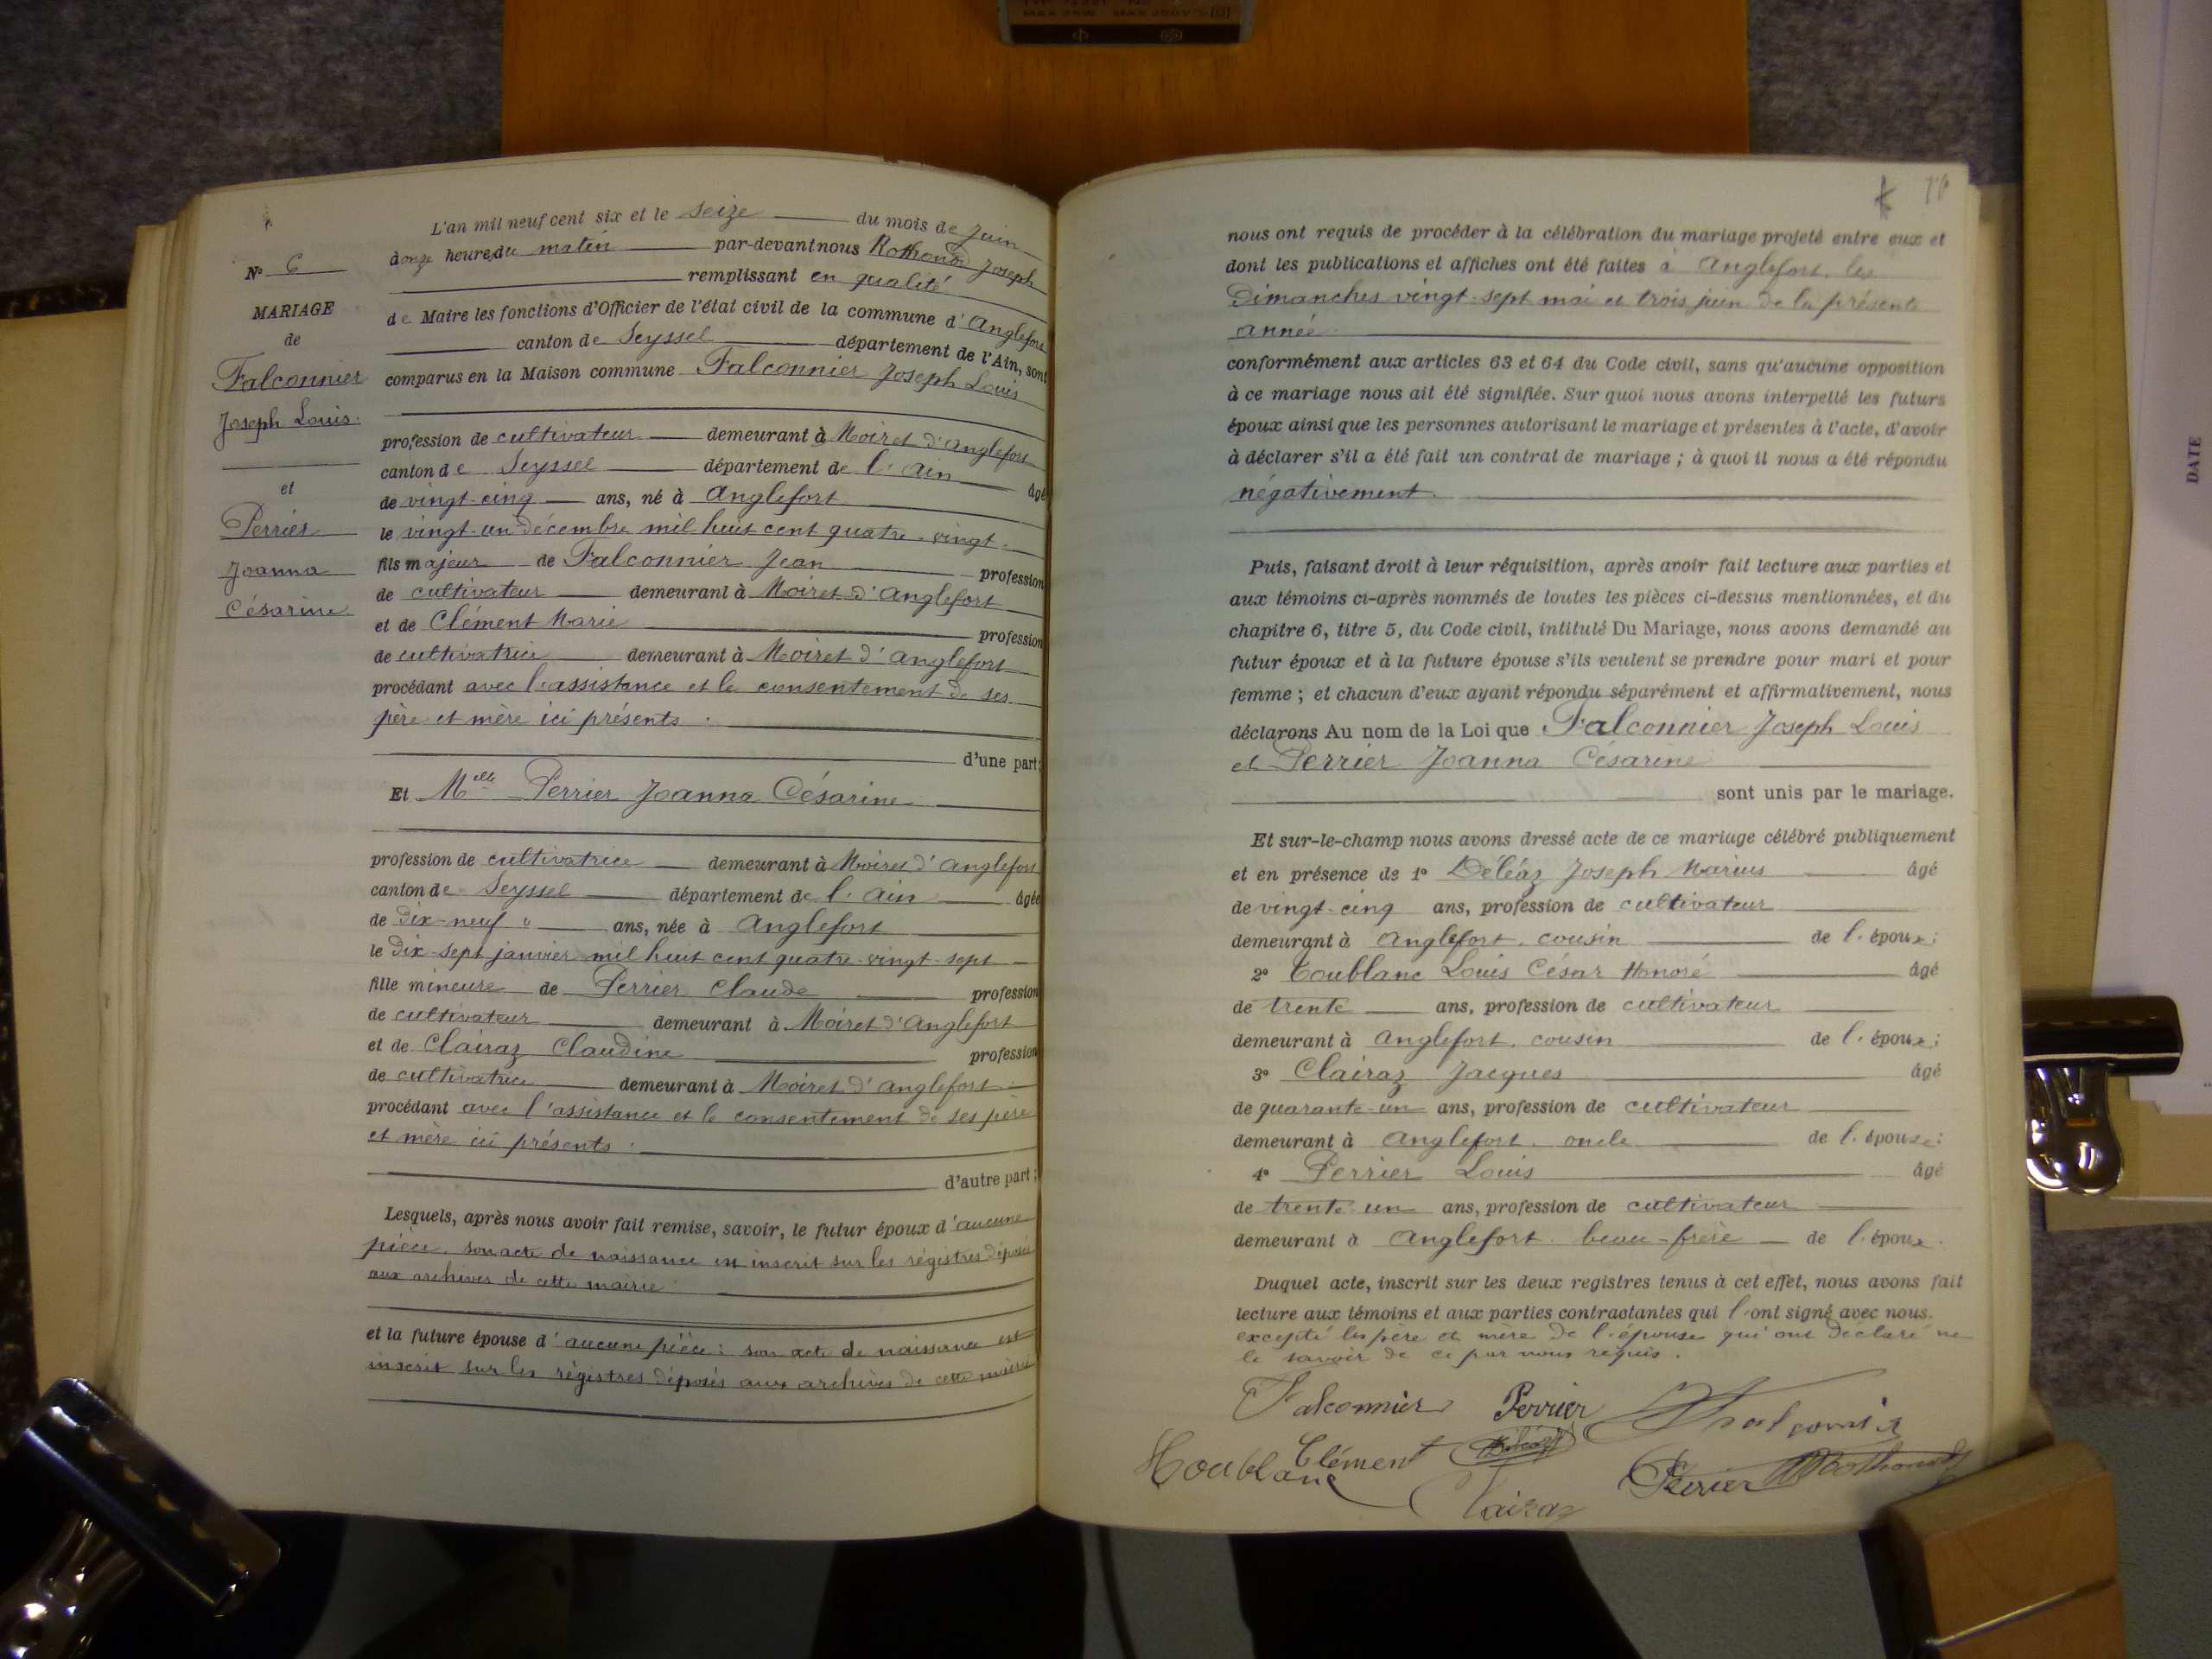 N° 6
MARIAGE
de
Falconnier
Joseph Louis.
et
Perrier
Joanna
Césarine
L'an mil neuf cent six et le seize du mois de juin
à onze heures du matin par-devant nous Rothonod Joseph
remplissant en qualité
de Maire les fonctions d'Officier de l'état civil de la commune d'Anglefort
canton de Seyssel département de l'Ain, sont
comparus en la Maison commune Falconnier Joseph Louis
profession de cultivateur demeurant à Moiret d'Anglefort
canton de Seyssel département de l'Ain âgé
de vingt-cinq ans, né à Anglefort
le vingt-un décembre mil huit cent quatre-vingt.
fils majeur de Falconnier Jean profession
de cultivateur demeurant à Moiret d'Anglefort
et de Clément Marie profession
de cultivatrice demeurant à Moiret d'Anglefort
procédant avec l'assistance et le consentement de ses
père et mère ici présents.
d'une part;
Et Melle Perrier Joanna Césarine
profession de cultivatrice demeurant à Moiret d'Anglefort
canton de Seyssel département de l'Ain âgée
de dix-neuf ans, née à Anglefort
le dix-sept janvier mil huit cent quatre-vingt-sept
fille mineure de Perrier Claude profession
de cultivateur demeurant à Moiret d'Anglefort
et de Clairaz Claudine profession
de cultivatrice demeurant à Moiret d'Anglefort
procédant avec l'assistance et le consentement de ses père
et mère ici présents.
d'autre part;
Lesquels, après nous avoir fait remise, savoir, le futur époux d'aucune
pièce. son acte de naissance est inscrit sur les régistres déposés
aux archives de cette mairie.
et la future épouse d'aucune pièce: son acte de naissance est
inscrit sur les régistres déposés aux archives de cette mairie
nous ont requis de procéder à la célébration du mariage projeté entre eux et
dont les publications et affiches ont été faites à Anglefort. les
Dimanches vingt-sept mai et trois juin de la présente
année.
conformément aux articles 63 et 64 du Code civil, sans qu'aucune opposition
à ce mariage nous ait été signifiée. Sur quoi nous avons interpellé les futurs
époux ainsi que les personnes autorisant le mariage et présentes à l'acte, d'avoir
à déclarer s'il a été fait un contrat de mariage ; à quoi il nous a été répondu
négativement.
Puis, faisant droit à leur réquisition, après avoir fait lecture aux parties et
aux témoins ci-après nommés de toutes les pièces ci-dessus mentionnées, et du
chapitre 6, titre 5, du Code civil, intitulé Du Mariage, nous avons demandé au
futur époux et à la future épouse s'ils veulent se prendre pour mari et pour
femme ; et chacun d'eux ayant répondu séparément et affirmativement, nous
déclarons Au nom de la Loi que Falconnier Joseph Louis
et Perrier Joanna Césarine
sont unis par le mariage.
Et sur-le-champ nous avons dressé acte de ce mariage célébré publiquement
et en présence de 1° Déléaz Joseph Marius âgé
de vingt-cinq ans, profession de cultivateur
demeurant à Anglefort. cousin de l'époux;
2° Toublanc Louis César Honoré âgé
de trente ans, profession de cultivateur
demeurant à Anglefort. cousin de l'époux;
3° Clairaz Jacques âgé
de quarante-un ans, profession de cultivateur
demeurant à Anglefort. oncle de l'épouse;
4° Perrier Louis âgé
de trente-un ans, profession de cultivateur
demeurant à Anglefort. beau-frère de l'époux.
Duquel acte, inscrit sur les deux registres tenus à cet effet, nous avons fait
lecture aux témoins et aux parties contractantes qui l'ont signé avec nous.
excepté les père et mère de l'épouse qui ont déclaré ne
le savoir de ce par nous requis.
Falconnier Perrier
Clément
Clairaz
Perrier Rothonod
DATE